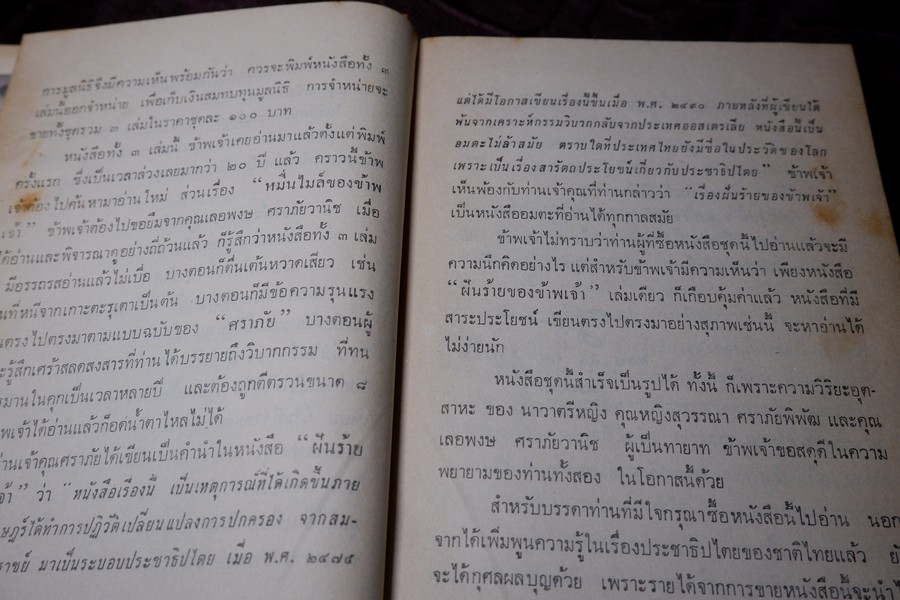 การมูลนิธิจึงมีความเห็นพร้อมกันว่า ควรจะพิมพ์หนังสือทั้ง ๓
เล่มนี้ออกจำหน่าย เพื่อเก็บเงินสมทบทุนมูลนิธิ การจำหน่ายจะ
ขายทั้งชุดรวม ๓ เล่มในราคาชุดละ ๑๐๐ บาท
หนังสือทั้ง ๓ เล่มนี้ ข้าพเจ้าเคยอ่านมาแล้วตั้งแต่พิมพ์
ครั้งแรก ซึ่งเป็นเวลาล่วงเลยมากว่า ๒๐ ปี แล้ว คราวนี้ข้าพ
เจ้าต้องไปค้นหามาอ่านใหม่ ส่วนเรื่อง “หมื่นไมล์ของข้าพ
เจ้า” ข้าพเจ้าต้องไปขอยืมจากคุณเลอพงษ์ ศราภัยวานิช เมื่อ
ได้อ่านและพิจารณาดูอย่างถี่ถ้วนแล้ว ก็รู้สึกว่าหนังสือทั้ง ๓ เล่ม
มีอรรถรสอ่านแล้วไม่เบื่อ บางตอนก็ตื่นเต้นหวาดเสียว เช่น
นที่หนีจากเกาะตะรุเตาเป็นต้น บางตอนก็มีข้อความรุนแรง
ตรงไปตรงมาตามแบบฉบับของ “ศราภัย” บางตอนผู้
รู้สึกเศร้าสลดสงสารที่ท่านได้บรรยายถึงวิบากกรรม ที่ทน
รมานในคุกเป็นเวลาหลายปี และต้องถูกตีตรวนขนาด ๘
พเจ้าได้อ่านแล้วก็อดน้ำตาไหลไม่ได้
่านเจ้าคุณศราภัยได้เขียนเป็นคำนำในหนังสือ “ฝันร้าย
จ้า” ว่า “หนังสือเรื่องนี้ เป็นเหตุการณ์ที่ได้เกิดขึ้นภาย
ษฎร์ได้ทำการปฏิวัติเปลี่ยนแปลงการปกครอง จากสม-
ราชย์ มาเป็นระบอบประชาธิปไตย เมื่อ พ.ศ. ๒๔๗๕
แต่ได้มีโอกาสเขียนเรื่องนี้ขึ้นเมื่อ พ.ศ. ๒๔๙๐ ภายหลังที่ผู้เขียนได้
พ้นจากเคราะห์กรรมวิบากกลับจากประเทศออสเตรเลีย หนังสือนี้เป็น
อมตะไม่ล้าสมัย ตราบใดที่ประเทศไทยยังมีชื่อในประวัติของโลก
เพราะเป็นเรื่องสารัตถประโยชน์เกี่ยวกับประชาธิปไตย” ข้าพเจ้า
เห็นพ้องกับท่านเจ้าคุณที่ท่านกล่าวว่า “เรื่องฝันร้ายของข้าพเจ้า”
เป็นหนังสืออมตะที่อ่านได้ทุกกาลสมัย
ข้าพเจ้าไม่ทราบว่าท่านผู้ที่ซื้อหนังสือชุดนี้ไปอ่านแล้วจะมี
ความนึกคิดอย่างไร แต่สำหรับข้าพเจ้ามีความเห็นว่า เพียงหนังสือ
“ฝันร้ายของข้าพเจ้า” เล่มเดียว ก็เกือบคุ้มค่าแล้ว หนังสือที่มี
สาระประโยชน์ เขียนตรงไปตรงมาอย่างสุภาพเช่นนี้ จะหาอ่านได้
ไม่ง่ายนัก
หนังสือชุดนี้สำเร็จเป็นรูปได้ ทั้งนี้ ก็เพราะความวิริยะอุต-
สาหะ ของ นาวาตรีหญิง คุณหญิงสุวรรณา ศราภัยพิพัฒ และคุณ
เลอพงษ์ ศราภัยวานิช ผู้เป็นทายาท ข้าพเจ้าขอสดุดีในความ
พยายามของท่านทั้งสอง ในโอกาสนี้ด้วย
สำหรับบรรดาท่านที่มีใจกรุณาซื้อหนังสือนี้ไปอ่าน นอก
จากได้เพิ่มพูนความรู้ในเรื่องประชาธิปไตยของชาติไทยแล้ว ยั
จะได้กุศลผลบุญด้วย เพราะรายได้จากการขายหนังสือนี้จะนำไ